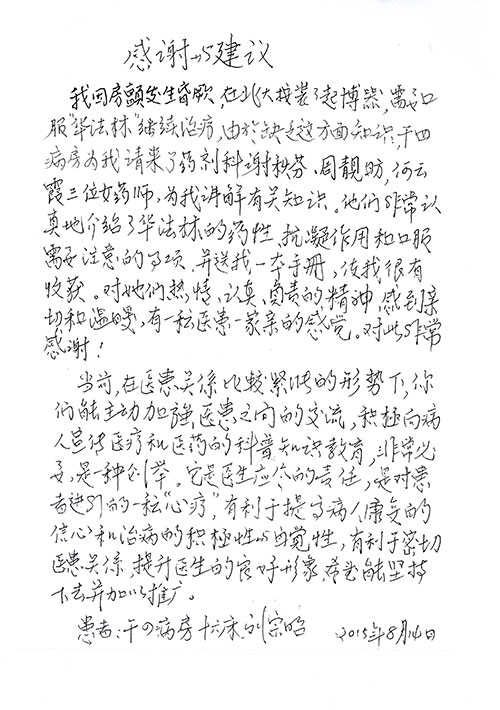 感谢与建议
我因房颤发生昏厥，在北大核装了起博器，需要口
服"华法林"继续治疗，由於缺乏这方面知识，干四
病房为我请来了药剂科谢秋芬、周靓昉、何云
霞三位女药师，为我讲解有关知识。他们非常认
真地介绍了华法林的药性、抗凝作用和口服
需要注意的事项，并送我一本手册，使我很有
收获。对她们热情、认真、负责的精神，感到亲
切和温暖，有一种医患一家亲的感觉。对此非常
感谢！
当前，在医患关係比较紧张的形势下，你
们能主动加强医患之间的交流，积极向病
人宣传医疗和医药的科普知识教育，非常必
要，是一种创举。它是医生应尽的责任，是对患
者进行的一种"心疗"，有利于提高病人康复的
信心和治病的积极性与自觉性，有利于密切
医患关係，提升医生的良好形象，希望能坚持
下去并加以推广。
患者：干四病房十六床 刘宗昭 2015年8月14日